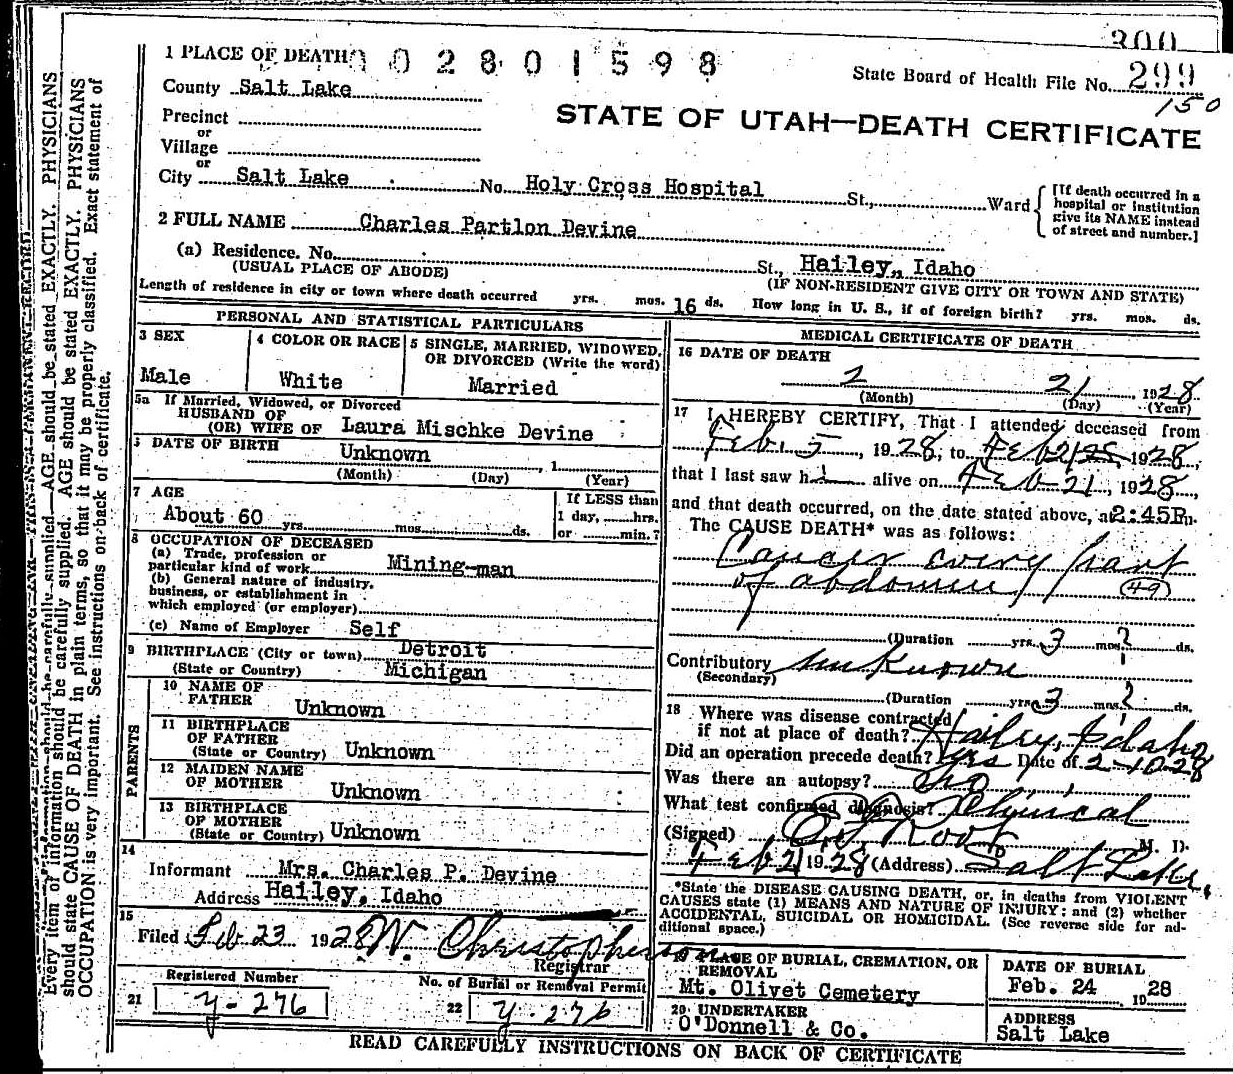 300
1 PLACE OF DEATH 0 0 2 8 0 1 5 9 8
State Board of Health File No. 299
150
County Salt Lake
STATE OF UTAH—DEATH CERTIFICATE
Precinct
or
Village
or
City Salt Lake No. Holy Cross Hospital St., Ward
[If death occurred in a
hospital or institution
give its NAME instead
of street and number.]
2 FULL NAME Charles Partlon Devine
(a) Residence. No. St., Hailey, Idaho
(USUAL PLACE OF ABODE) (IF NON-RESIDENT GIVE CITY OR TOWN AND STATE)
Length of residence in city or town where death occurred yrs. mos. 16 ds. How long in U. S., if of foreign birth? yrs. mos. ds.
PERSONAL AND STATISTICAL PARTICULARS
3 SEX
Male
4 COLOR OR RACE
White
5 SINGLE, MARRIED, WIDOWED,
OR DIVORCED (Write the word)
Married
5a If Married, Widowed, or Divorced
HUSBAND OF
(OR) WIFE OF Laura Mischke Devine
DATE OF BIRTH Unknown , 1
(Month) (Day) (Year)
7 AGE
About 60 yrs. mos. ds.
If LESS than
1 day, hrs.
or min.?
8 OCCUPATION OF DECEASED
(a) Trade, profession or
particular kind of work Mining-man
(b) General nature of industry,
business, or establishment in
which employed (or employer)
(c) Name of Employer Self
9 BIRTHPLACE (City or town) Detroit
(State or Country) Michigan
PARENTS
10 NAME OF
FATHER Unknown
11 BIRTHPLACE
OF FATHER
(State or Country) Unknown
12 MAIDEN NAME
OF MOTHER Unknown
13 BIRTHPLACE
OF MOTHER
(State or Country) Unknown
14
Informant Mrs. Charles P. Devine
Address Hailey, Idaho
15
Filed Feb 23 1928 W. Christopherson
Registrar
Registered Number
21 y-276
No. of Burial or Removal Permit
22 y-276
MEDICAL CERTIFICATE OF DEATH
16 DATE OF DEATH
2 21 , 1928
(Month) (Day) (Year)
17 I HEREBY CERTIFY, That I attended deceased from
Feb. 5 , 1928, to Feb 21 1928,
that I last saw h alive on Feb 21, 1928,
and that death occurred, on the date stated above, at 2:45P m.
The CAUSE DEATH* was as follows:
Cancer every part
of abdomen 49
(Duration yrs. 3 mos. ? ds.
Contributory unknown
(Secondary)
(Duration yrs. 3 mos. ? ds.
18 Where was disease contracted
if not at place of death? Hailey, Idaho
Did an operation precede death? yes Date of 2-10-28
Was there an autopsy? no
What test confirmed diagnosis? Clinical
(Signed) Root M. D.
Feb 21 1928 (Address) Salt Lake,
*State the DISEASE CAUSING DEATH, or, in deaths from VIOLENT
CAUSES state (1) MEANS AND NATURE OF INJURY; and (2) whether
ACCIDENTAL, SUICIDAL OR HOMICIDAL. (See reverse side for ad-
ditional space.)
PLACE OF BURIAL, CREMATION, OR
REMOVAL
Mt. Olivet Cemetery
DATE OF BURIAL
Feb. 24 , 1928
20 UNDERTAKER
O'Donnell & Co.
ADDRESS
Salt Lake
READ CAREFULLY INSTRUCTIONS ON BACK OF CERTIFICATE
Every item of information should be carefully supplied. AGE should be stated EXACTLY. PHYSICIANS
should state CAUSE OF DEATH in plain terms, so that it may be properly classified. Exact statement of
OCCUPATION is very important. See instructions on back of certificate.